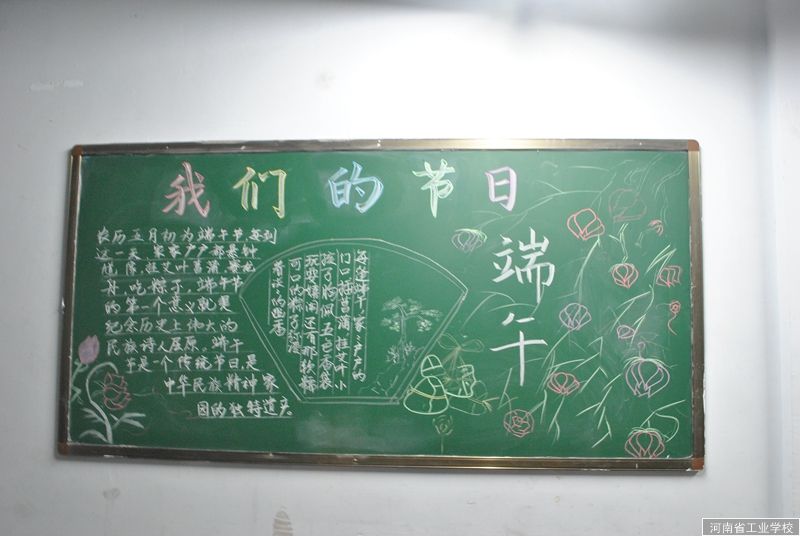 我们的节日
端午
农历五月初为端午节每到
这一天,家家户户都悬钟
馗像,挂艾叶菖蒲,赛龙
舟,吃粽子,端午节
的第一个意义就是
纪念历史上伟大的
民族诗人屈原。端午
于是一个传统节日,是
中华民族精神家
园的独特遗产
每逢端午,家家户户的
门口插菖蒲挂艾叶小
孩子胸佩五色香袋
玩耍嬉闹还有那软糯
可口的粽子弥漫
着淡淡的幽香
河南省工业学校